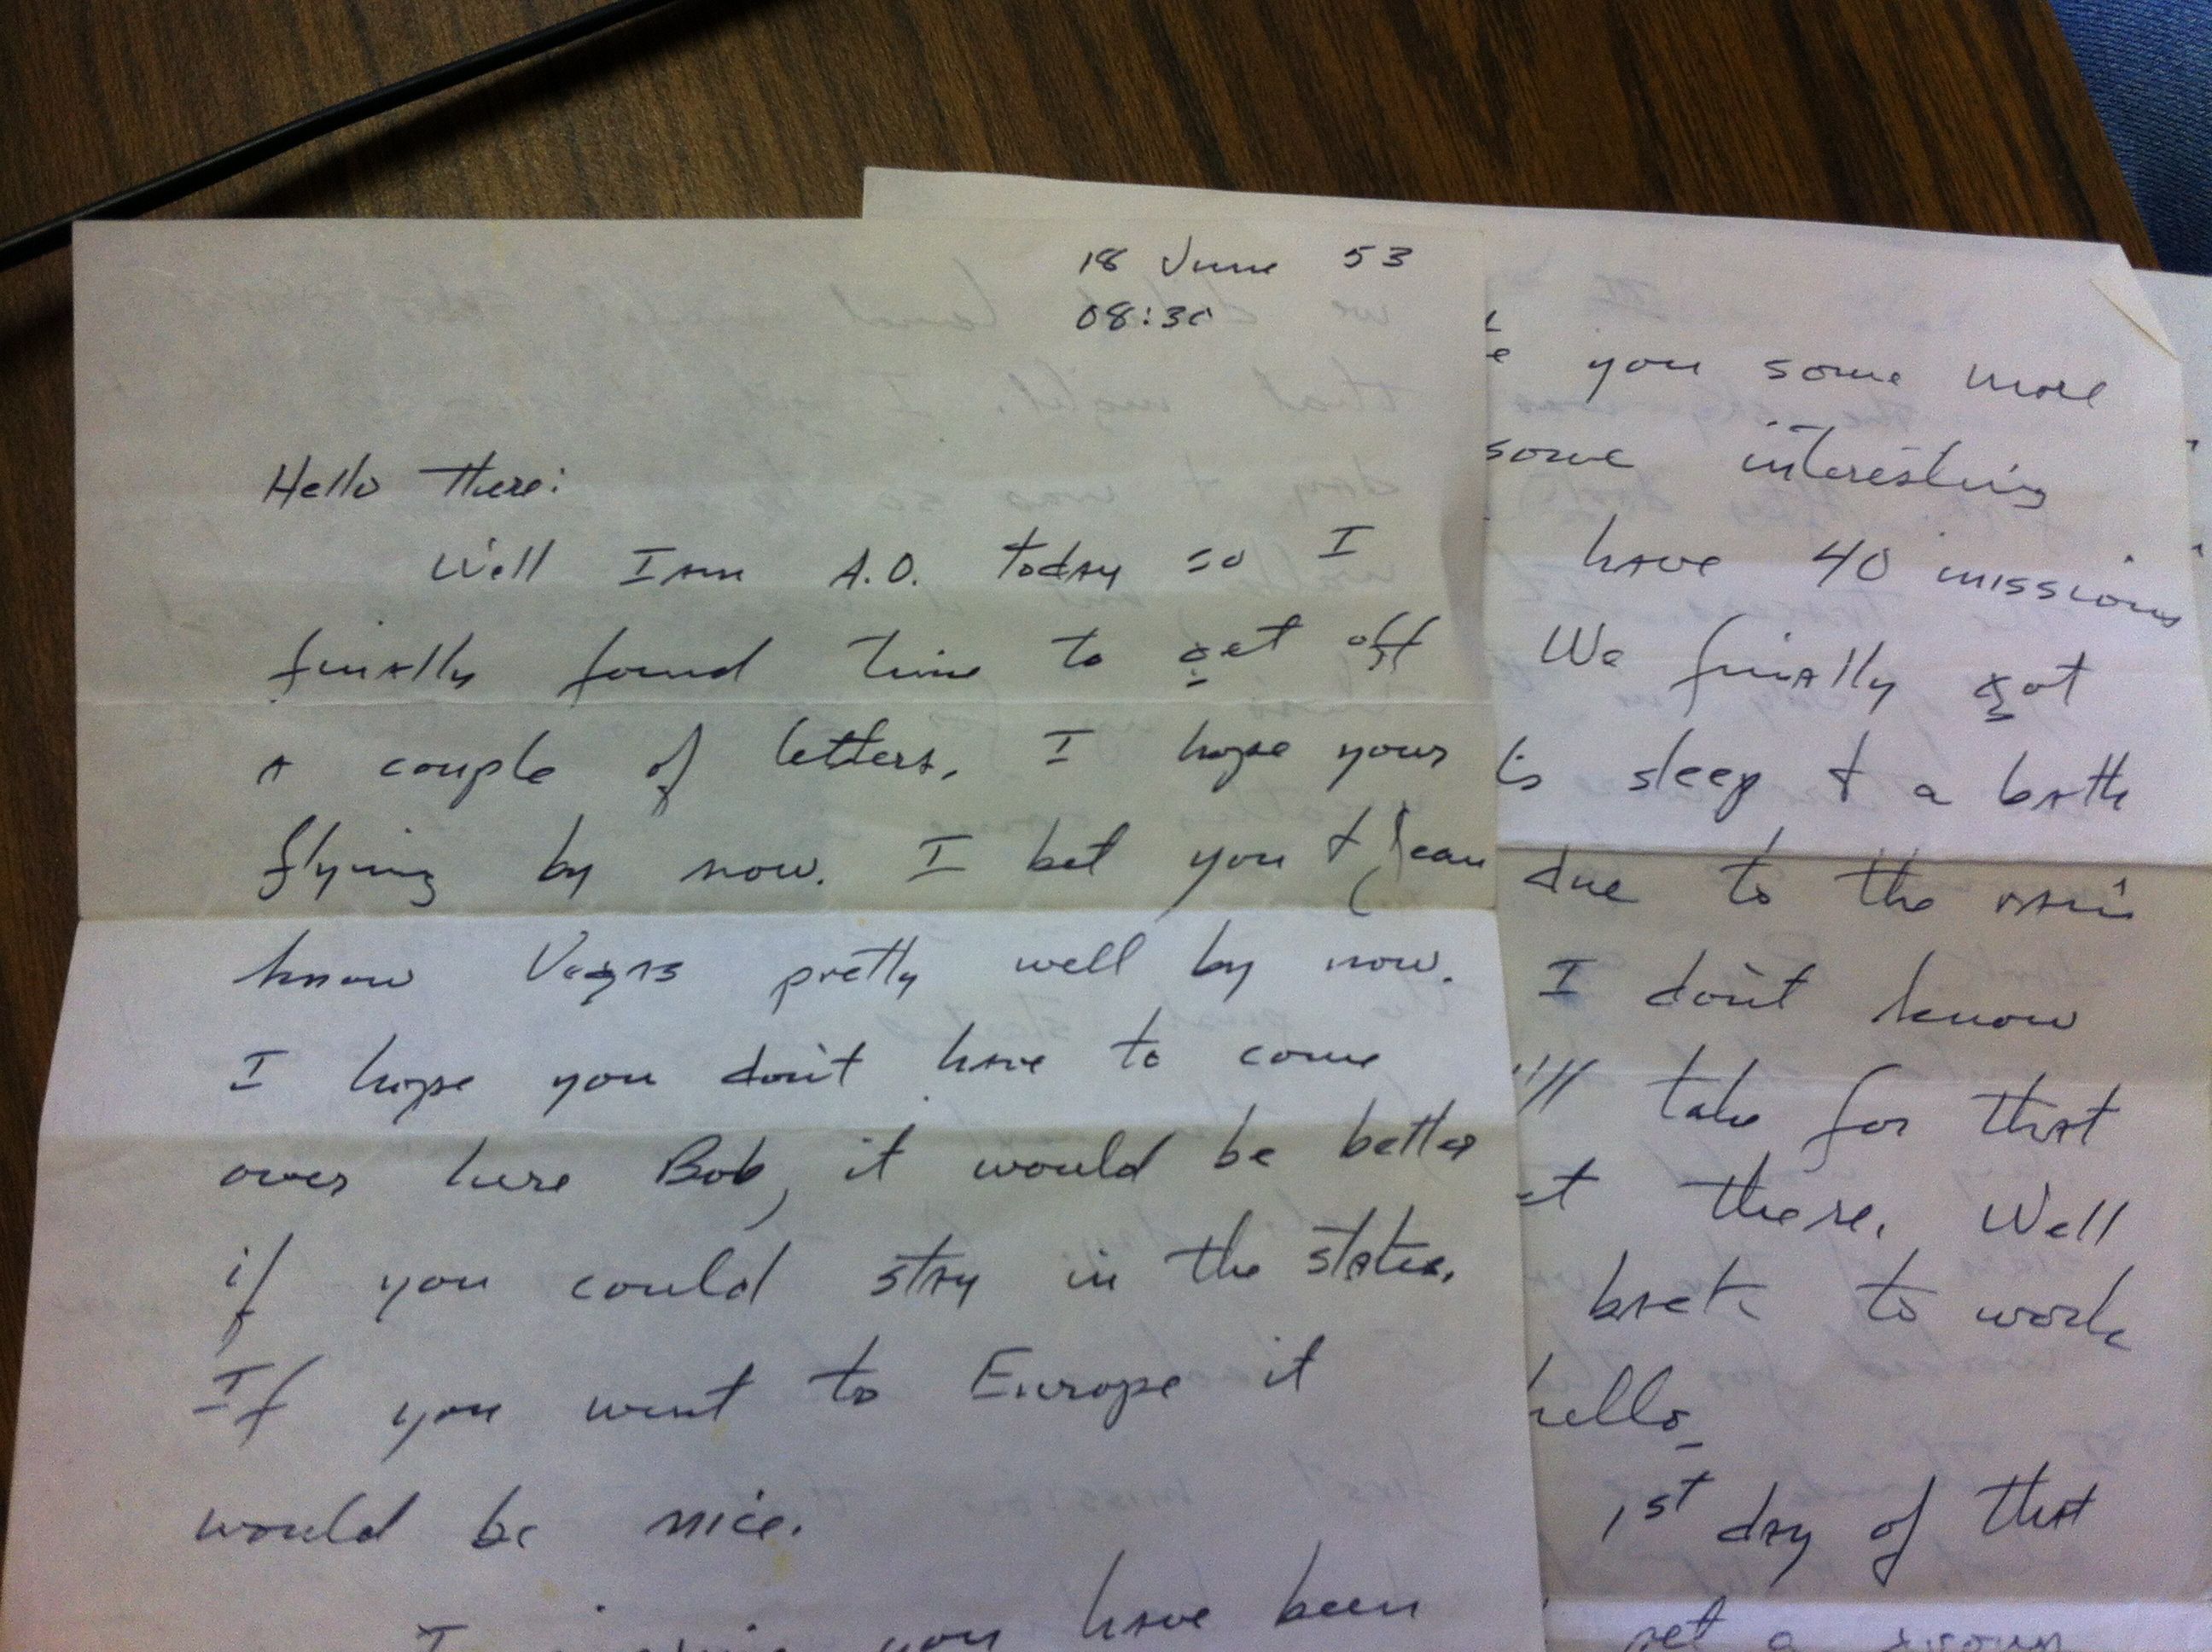 18 June 53
08:30
Hello There:
Well I am A.O. today so I
finally found time to get off
a couple of letters. I hope your
flying by now. I bet you & Jean
know Vegas pretty well by now.
I hope you don't have to come
over here Bob, it would be better
if you could stay in the states.
If you went to Europe it
would be nice.
you have been
you some more
some interesting
have 40 missions
We finally got
sleep & a bath
due to the rain
I don't know
take for that
there. Well
back to work
hello
1st day of that
get a